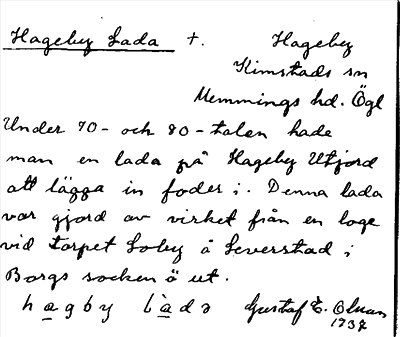 Hageby Lada +. Hageby
Kimstads sn
Memmings hd. Ögl
Under 70- och 80-talen hade
man en lada på Hageby Utjord
att lägga in foder i. Denna lada
var gjord av virket från en loge
vid torpet Loby å Leverstad i
Borgs socken ö ut.
hagby làda Gustaf E. Olsson